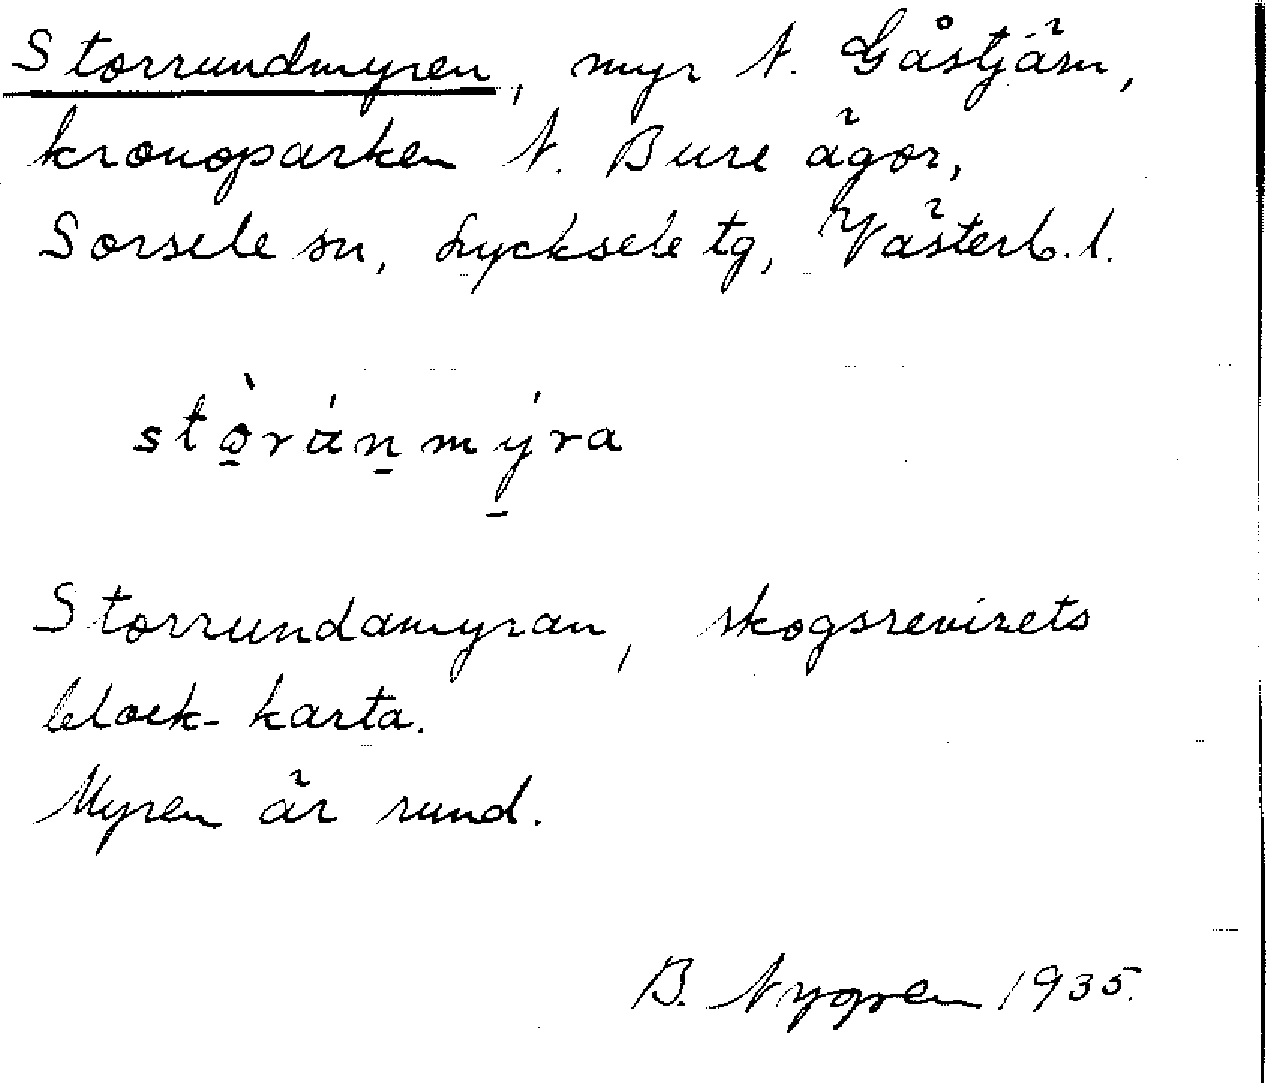 Storrundmyren, myr N. Gåstjärn,
kronoparken N. Bure ägor,
Sorsele sn, Lycksele tg, Västerb. l.
stò̱rúṉmý̱ra
Storrundamyran, skogsrevirets
block-karta.
Myren är rund.
B. Nygren 1935.